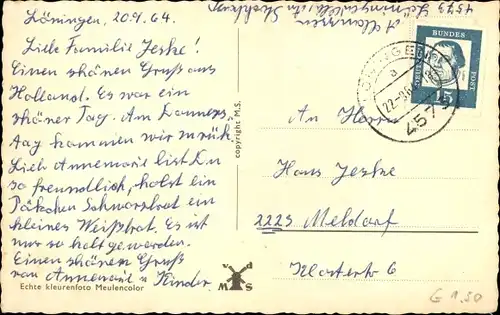 Löningen, 20.9.64.
Liebe Familie Jeske!
Einen schönen Gruß aus
Holland. Es war ein
schöner Tag. Am Donners
tag kommen wir zurück.
Lieb Annemarie bist Du
so freundlich, holst ein
Päckchen Schwarzbrot ein
kleines Weißbrot. Es ist
nur so kalt geworden.
Einen schönen Gruß
von Annemarie u Kinder
Echte kleurenfoto Meulencolor
copyright M.S.
M S
4573
DEUTSCHE BUNDESPOST
15
LÖNINGEN
a
22.-9.64
457
An Herrn
Hans Jeske
2223 Meldorf
Klosterstr 6
G 1.50